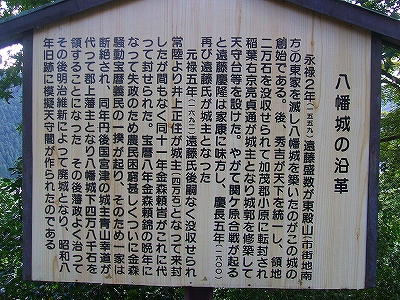 八幡城の沿革
永禄２年(一五五九)遠藤盛数が東殿山(市街地南
方)の東家を滅し八幡城を築いたのがこの城の
創始である。後、秀吉が天下を統一し、領地
二万石を没収せられて加茂郡小原に転封され
稲葉右京亮貞通が城主となり城郭を修築して
天守台等を設けた。やがて関ケ原合戦が起る
と遠藤慶隆は家康に味方し、慶長五年(一六〇〇)
再び遠藤氏が城主となった
元禄五年(一六九二)遠藤氏後嗣なく没収せられ
常陸より井上正任が城主(四万石)となって来封
したが間もなく同十年金森頼旹がこれに代
って封せられた。宝暦八年金森頼錦の晩年に
なって失政のため農民困窮甚しくついに金森
騒動宝暦義民の一揆が起り、そのため一家は
断絶され、同年丹後国宮津の城主青山幸道が
代って郡上藩主となり八幡城下四万八千石を
領することになった その後藩政よく治って
その後明治維新によって廃城となり、昭和八
年旧跡に模擬天守閣が作られたのである